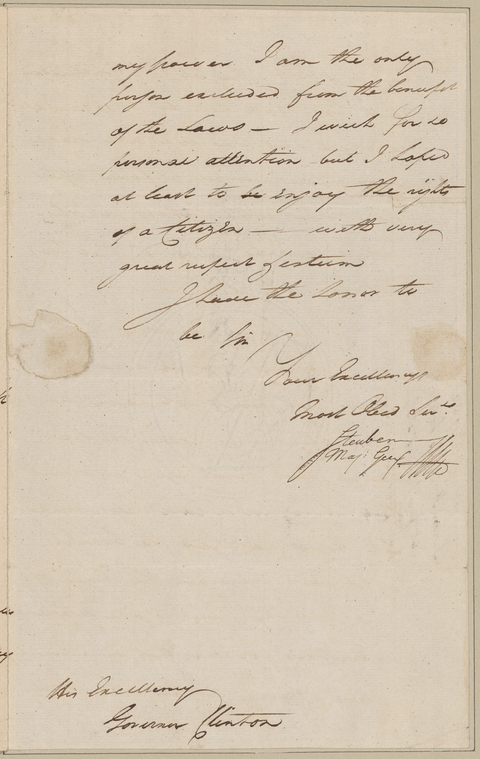 my power I am the only
person excluded from the benefit
of the Laws — I wish for no
personal attention but I hoped
at least to be enjoy the rights
of a Citizen — with very
great respect & esteem
I have the honor to
be Sir
Your Excellencys
most Obed Servt
Steuben
Maj: Genl
His Excellency
Governor Clinton